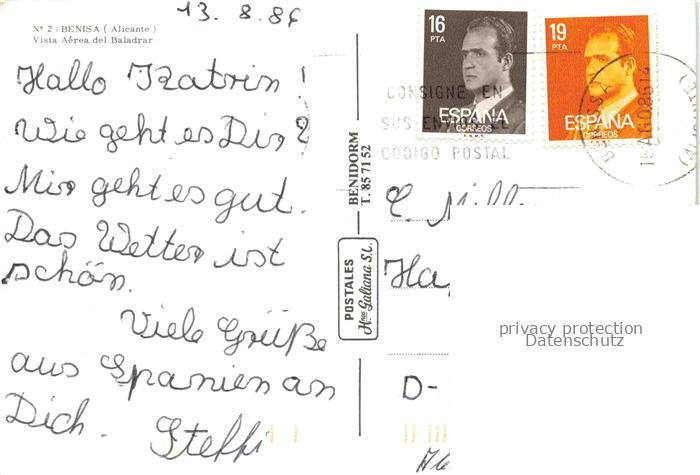 13. 8. 86
Nº 2 - BENISA ( Alicante )
Vista Aérea del Baladrar
Hallo Katrin !
Wie geht es Dir?
Mir geht es gut.
Das Wetter ist
schön.
Viele Grüße
aus Spanien an
Dich.
Steffi
BENIDORM
T. 85 71 52
POSTALES
Hnos Galiana S.L.
16
PTA
ESPAÑA
CORREOS
19
PTA
ESPAÑA
CORREOS
CONSIGNE EN
SUS ENVIOS EL
CODIGO POSTAL
D-
privacy protection
Datenschutz